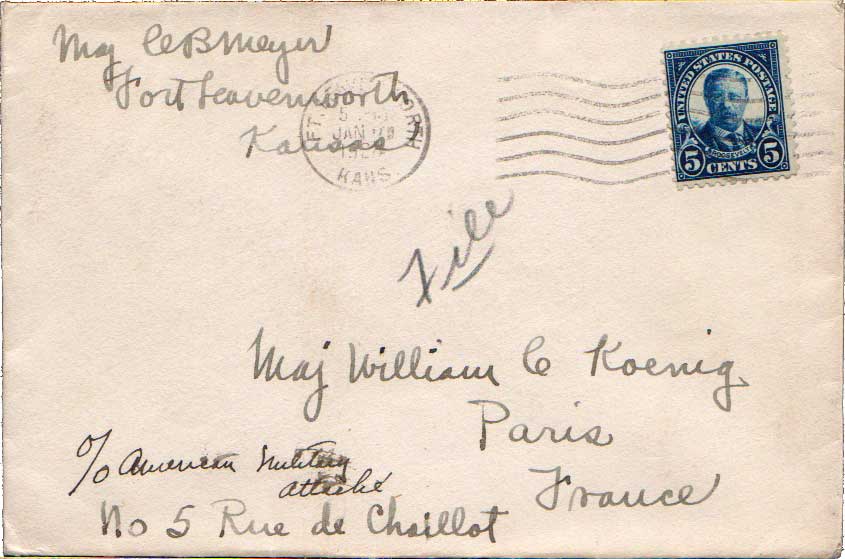 Maj C B Meyer
Fort Leavenworth
Kansas
FT. LEAVENWORTH
JAN
KANS.
UNITED STATES POSTAGE
ROOSEVELT
5 CENTS 5
File
Maj William C Koenig
Paris
France
c/o American Military
attaché
No 5 Rue de Chaillot